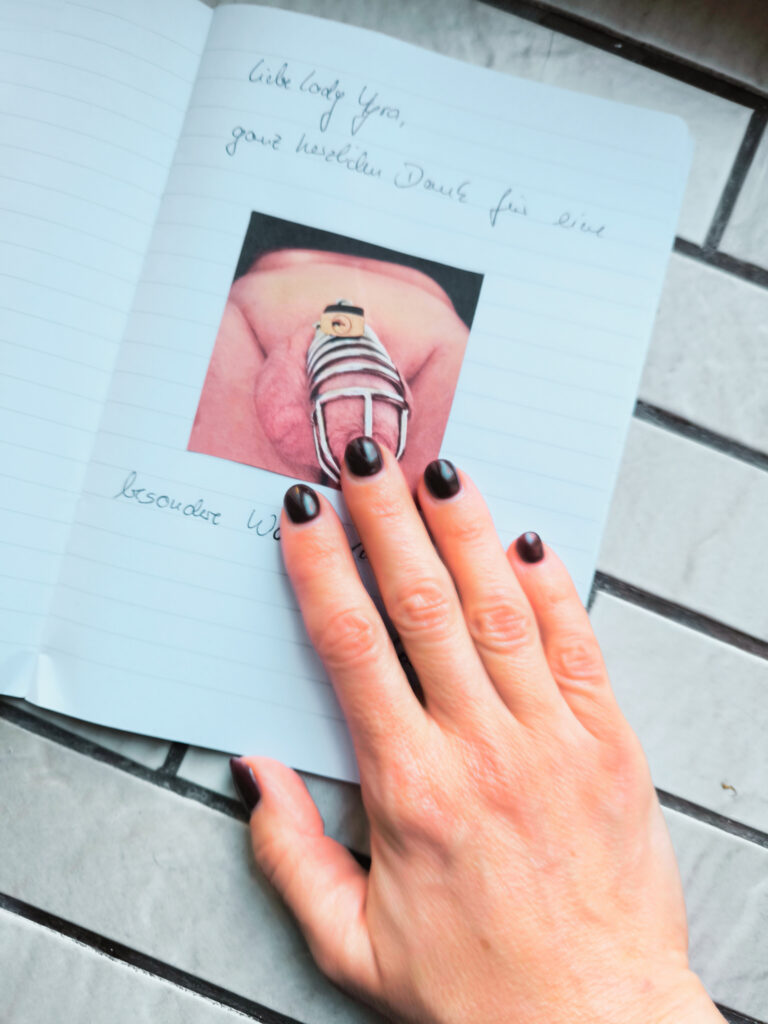 Liebe Lady Ygra,
ganz herzlichen Dank für eine
besondere